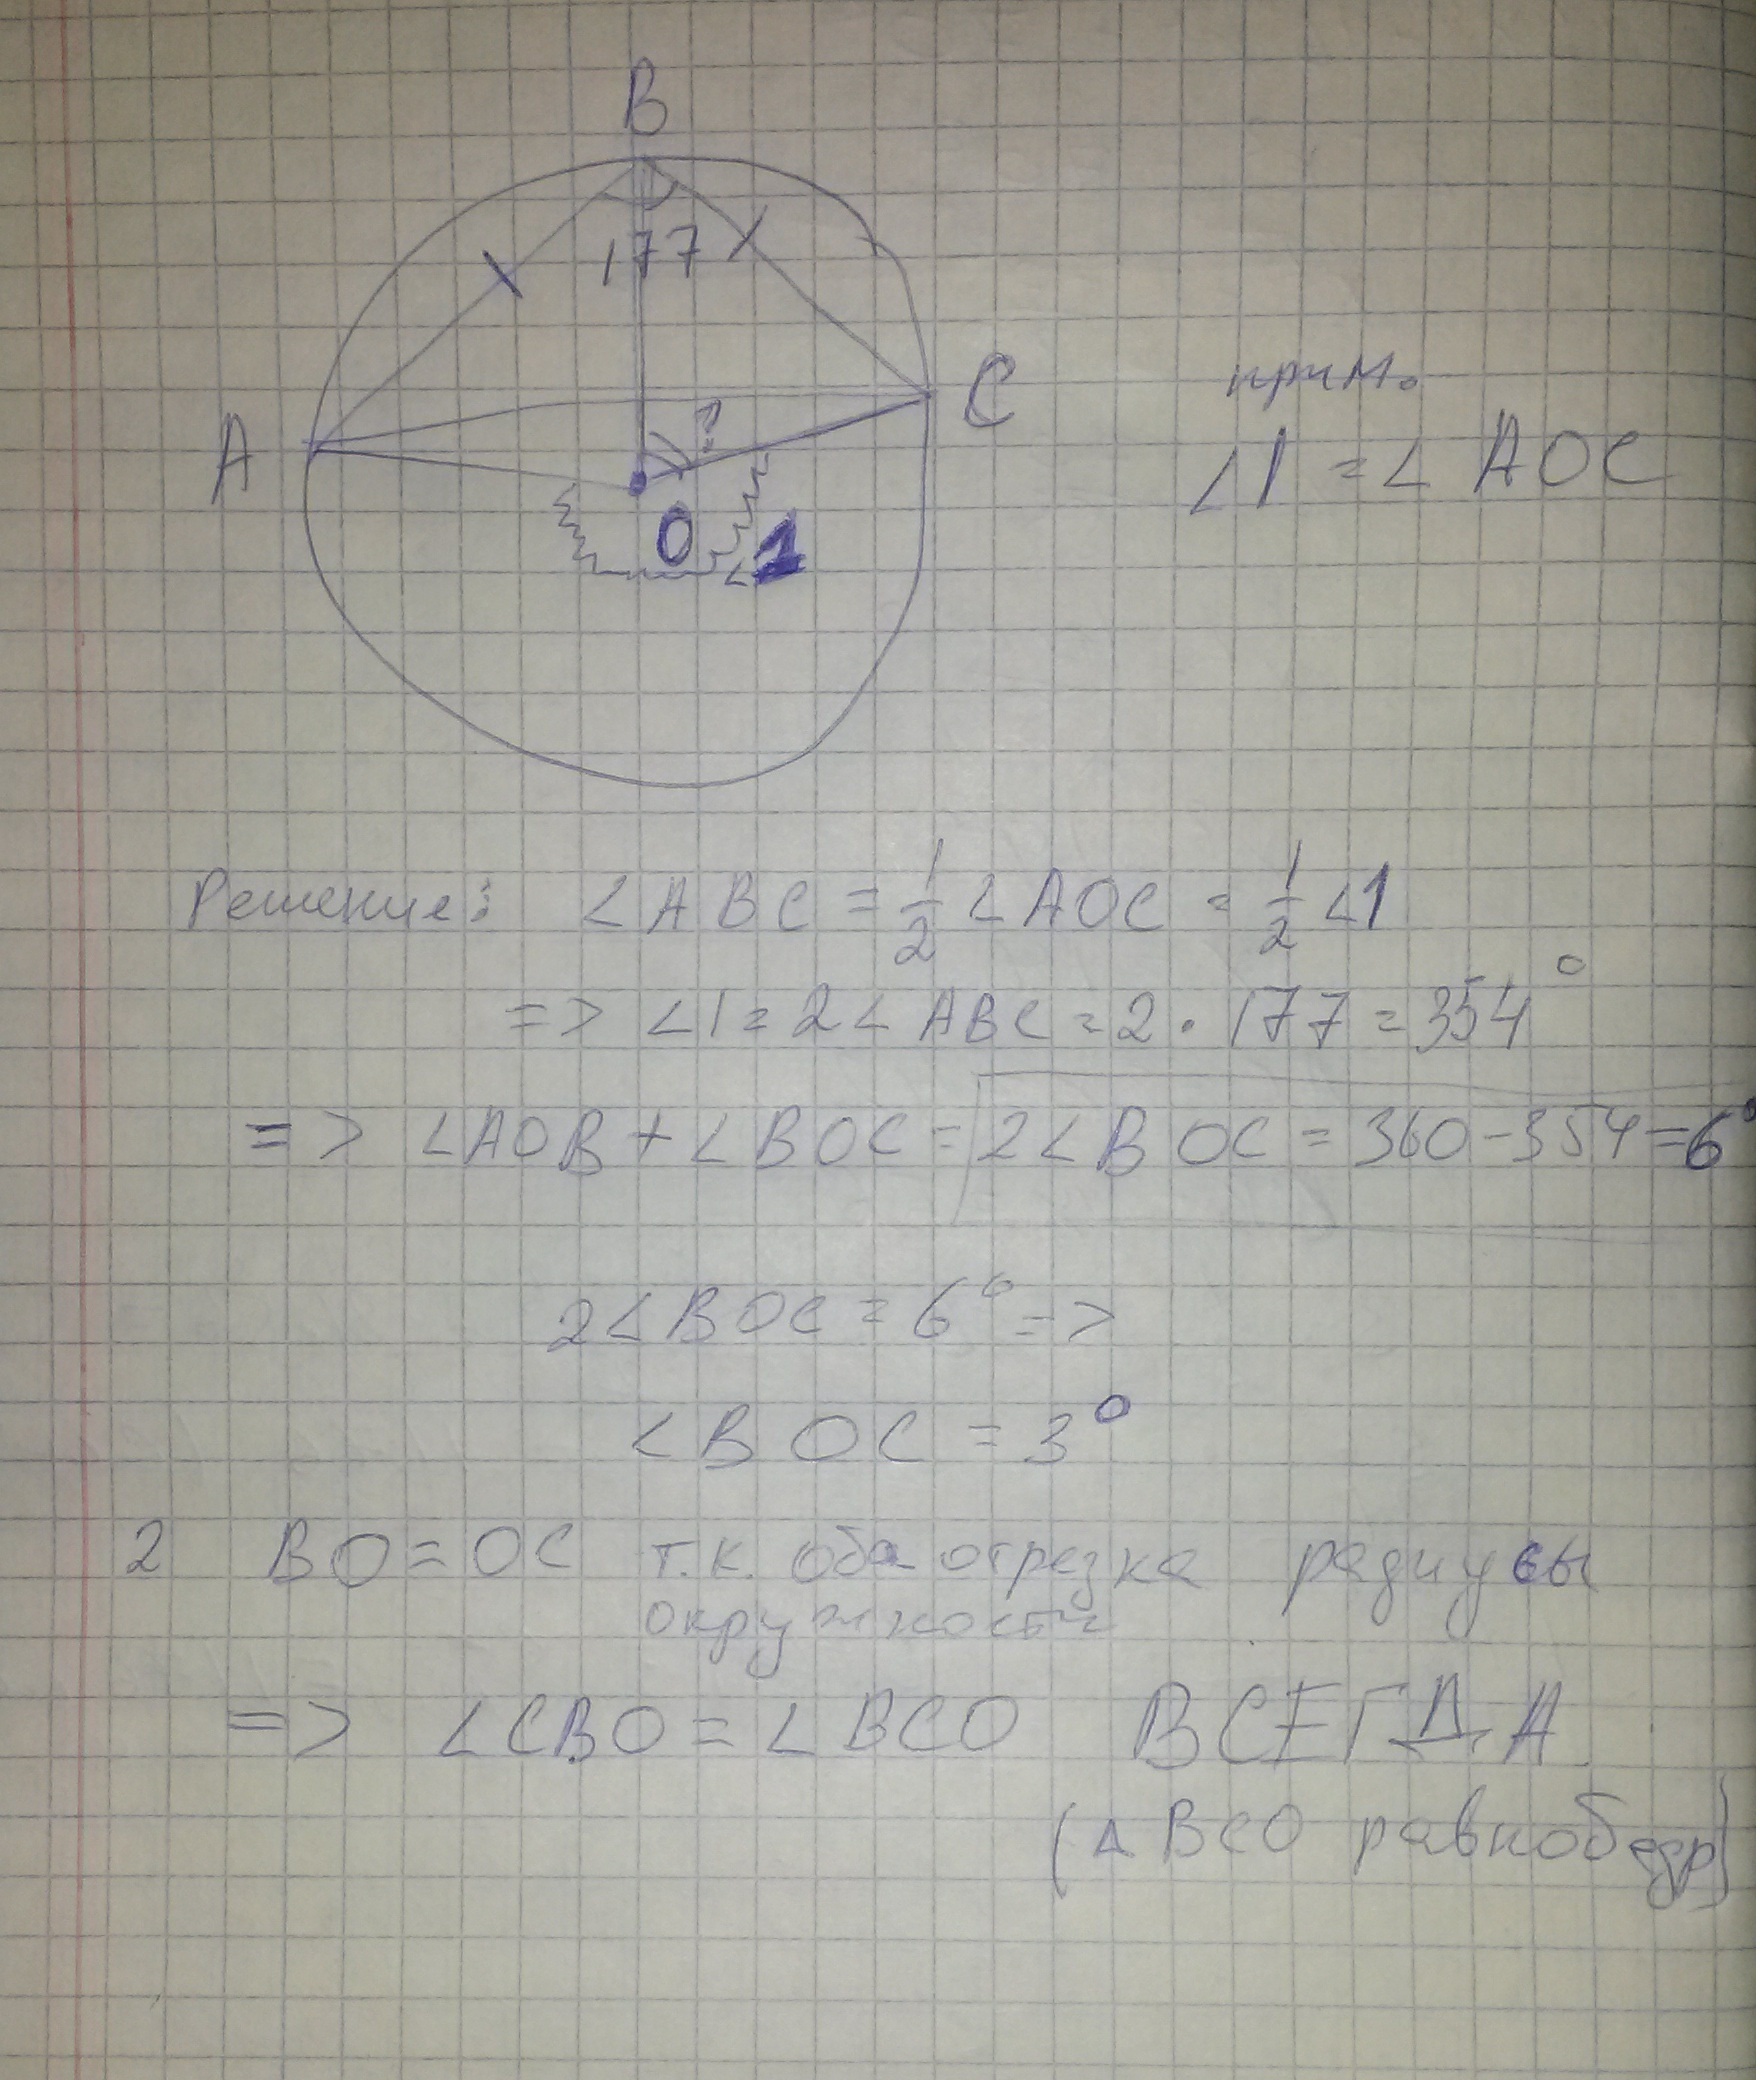 B
177
A
C
= ?
O
<1
прим.
∠1 = ∠ AOC
Решение: ∠ABC = 1/2 ∠AOC = 1/2 ∠1
=> ∠1 = 2∠ ABC = 2 · 177 = 354°
=> ∠AOB + ∠BOC = 2∠BOC = 360-354=6°
2∠BOC = 6° =>
∠BOC = 3°
2 BO=OC т.к. оба отрезка радиусы
окружности
=> ∠CBO = ∠BCO ВСЕГДА
(△ BCO равнобедр)